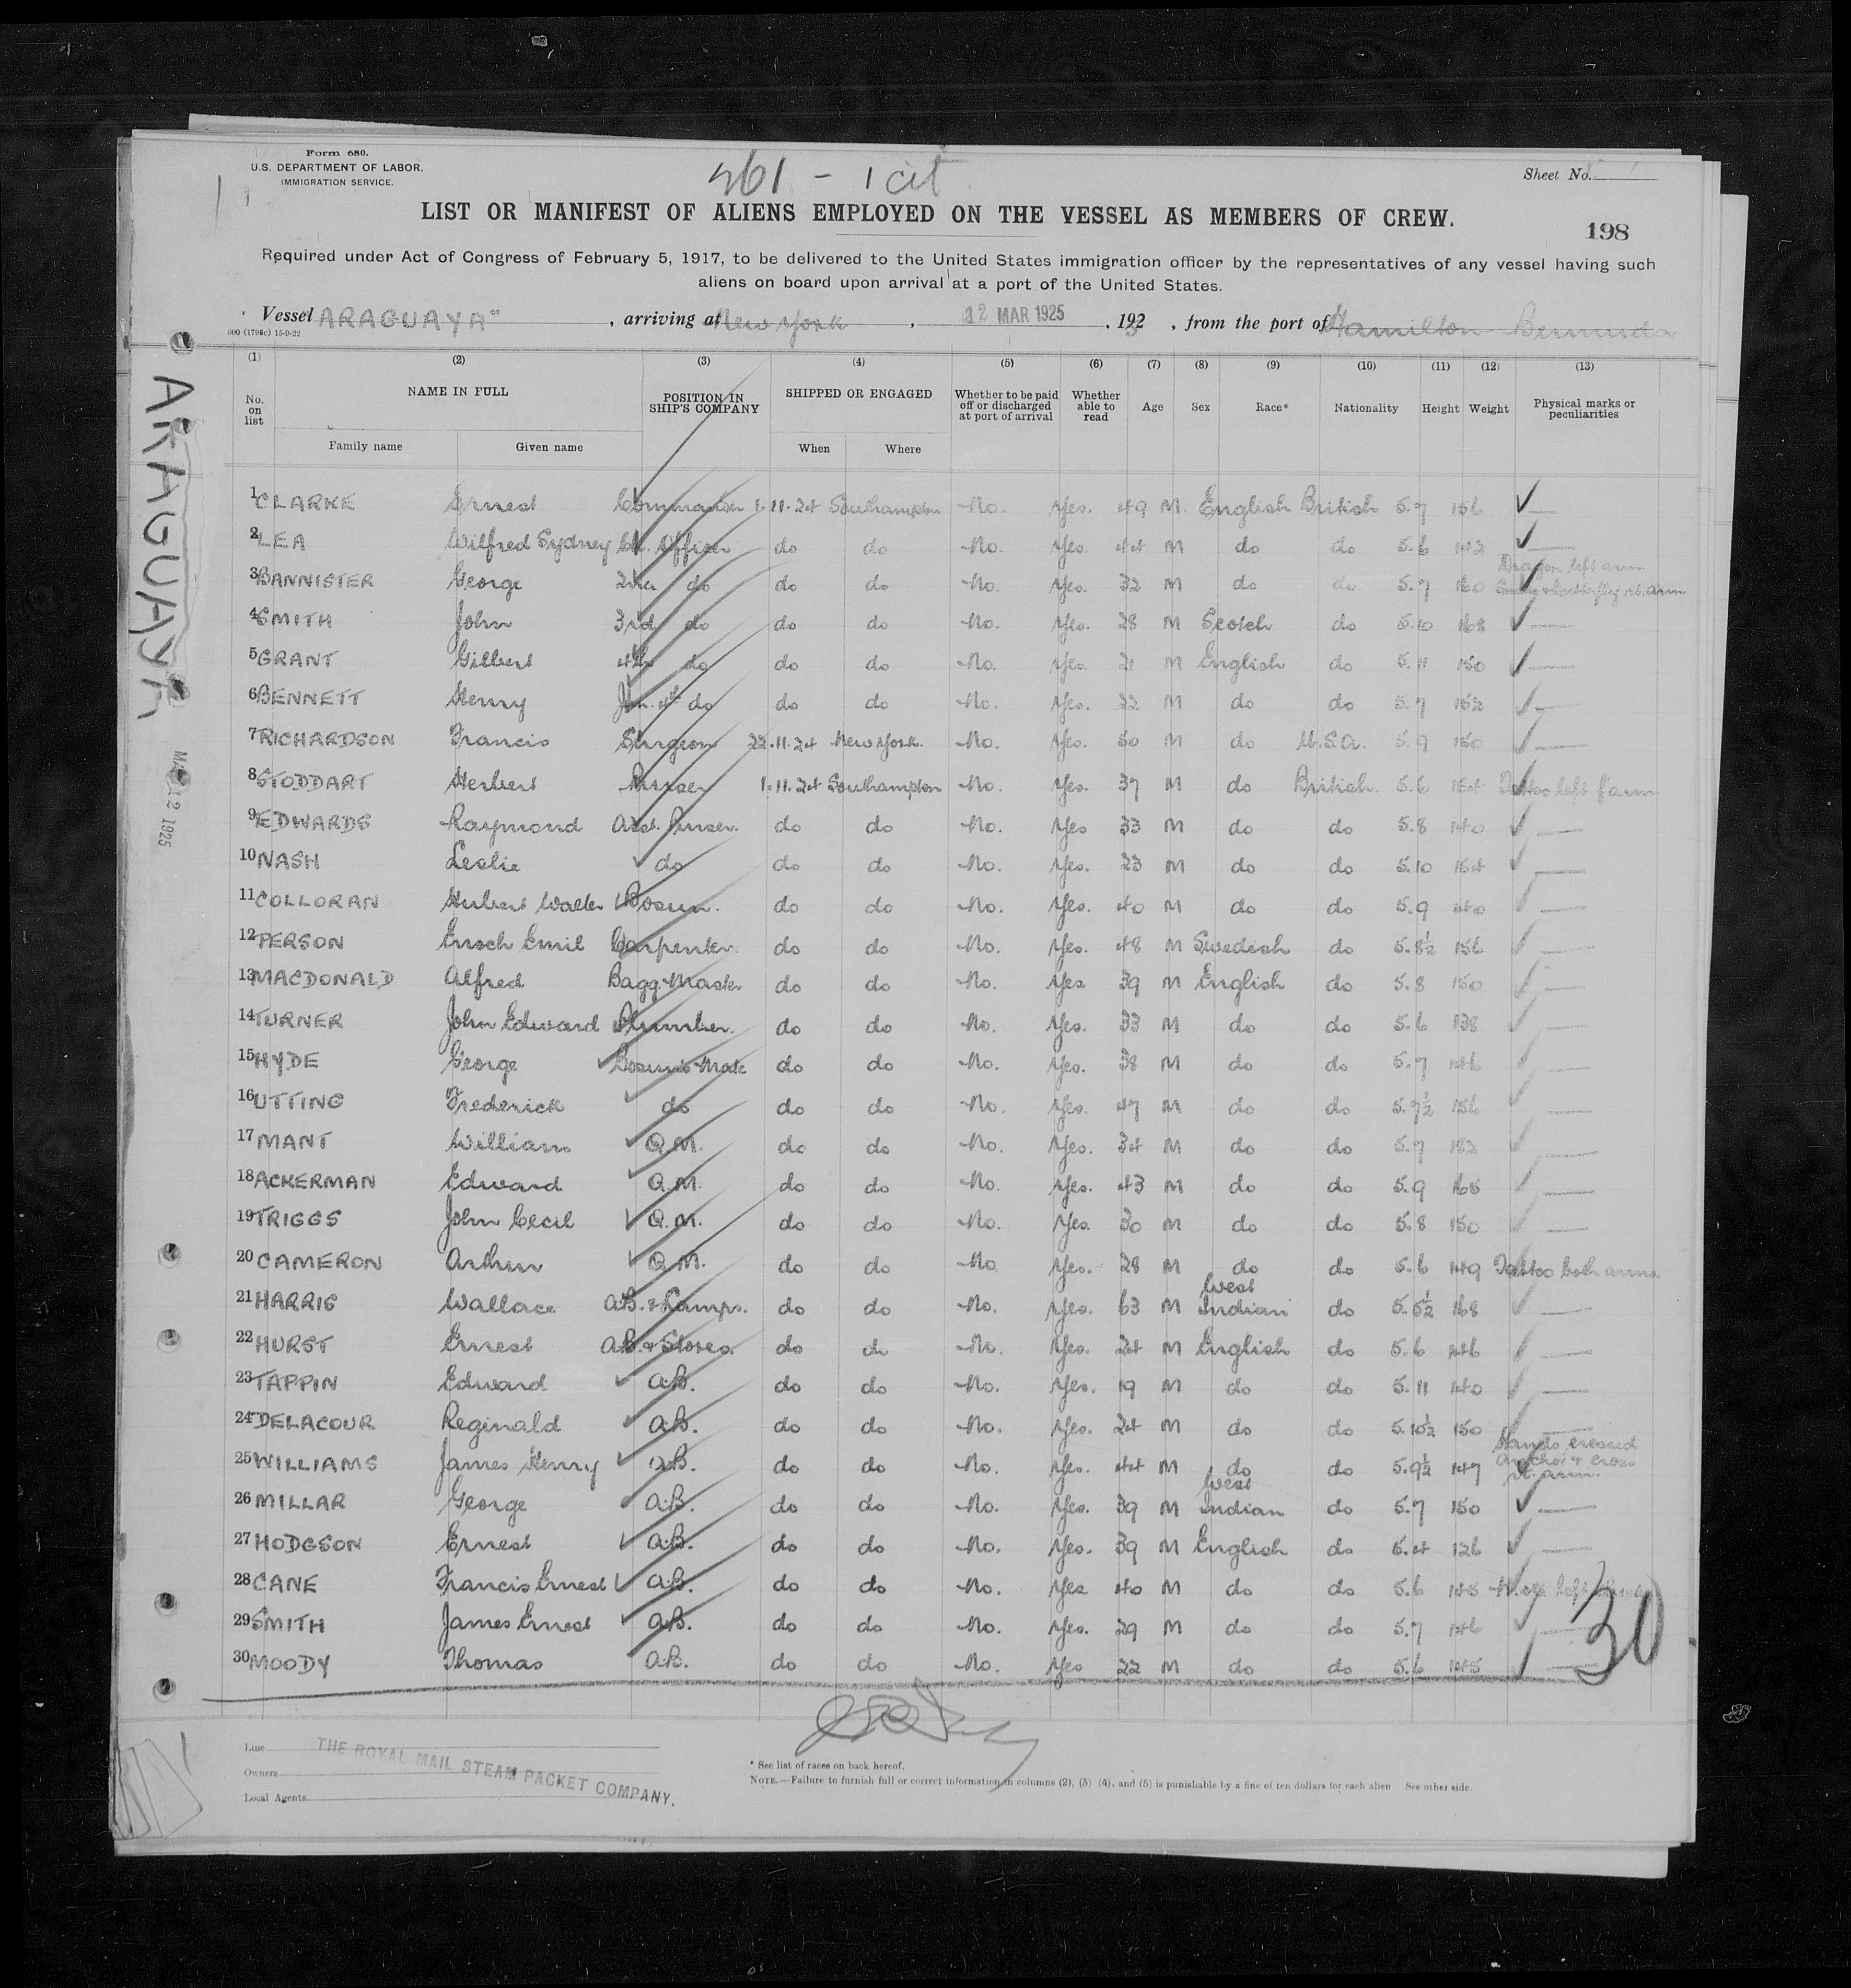 Form 680.
U.S. DEPARTMENT OF LABOR.
IMMIGRATION SERVICE.
261 - 1 cit
Sheet No.
LIST OR MANIFEST OF ALIENS EMPLOYED ON THE VESSEL AS MEMBERS OF CREW.
198
Required under Act of Congress of February 5, 1917, to be delivered to the United States immigration officer by the representatives of any vessel having such
aliens on board upon arrival at a port of the United States.
Vessel ARAGUAYA", arriving at New York, 12 MAR 1925, 1925, from the port of Hamilton Bermuda
(1) (2) (3) (4) (5) (6) (7) (8) (9) (10) (11) (12) (13)
No. on list NAME IN FULL POSITION IN SHIP'S COMPANY SHIPPED OR ENGAGED Whether to be paid off or discharged at port of arrival Whether able to read Age Sex Race* Nationality Height Weight Physical marks or peculiarities
Family name Given name When Where
1 CLARKE Ernest Commander 1.11.24 Southampton No. Yes. 49 M. English British 5.7 156
2 LEA Wilfred Sydney Ch. Officer do do No. Yes. 44 M do do 5.6 142
3 BANNISTER George 2nd do do do No. Yes. 32 M do do 5.7 160 Dragon left arm butterfly rt. arm
4 SMITH John 3rd do do do No. Yes. 28 M Scotch do 5.10 168
5 GRANT Gilbert 4th do do do No. Yes. 21 M English do 5.11 150
6 BENNETT Henry Jun. 4th do do do No. Yes. 22 M do do 5.7 152
7 RICHARDSON Francis Surgeon 22.11.24 New York. No. Yes. 50 M do U.S.A. 5.9 150
8 STODDART Herbert Purser 1.11.24 Southampton No. Yes. 37 M do British. 5.6 154 Tattoo left f'arm
9 EDWARDS Raymond Asst. Purser. do do No. Yes 33 M do do 5.8 140
10 NASH Leslie do do do No. Yes. 23 M do do 5.10 154
11 COLLORAN Hubert Walter Bosun. do do No. Yes. 40 M do do 5.9
12 PERSON Enoch Emil Carpenter. do do No. Yes. 48 M Swedish do 5.8½ 156
13 MACDONALD Alfred Bagg. Master do do No. Yes 39 M English do 5.8 150
14 TURNER John Edward Plumber. do do No. Yes. 33 M do do 5.6 138
15 HYDE George Bosun's Mate do do No. Yes. 38 M do do 5.7 146
16 UTTING Frederick do do do No. Yes. 47 M do do 5.7½ 156
17 MANT William Q.M. do do No. Yes. 34 M do do 5.7 182
18 ACKERMAN Edward Q.M. do do No. Yes. 43 M do do 5.9 168
19 TRIGGS John Cecil Q.M. do do No. Yes. 30 M do do 5.8 150
20 CAMERON Arthur Q.M. do do No Yes. 28 M do do 5.6 149 Tattoo both arms.
21 HARRIS Wallace A.B. & Lamps. do do No. Yes. 63 M West Indian do 5.5½ 168
22 HURST Ernest A.B. & Stores. do do No. Yes. 24 M English do 5.6 146
23 TAPPIN Edward A.B. do do No. Yes. 19 M do do 5.11 140
24 DELACOUR Reginald A.B. do do No. Yes. 24 M do do 5.10½ 150
25 WILLIAMS James Henry A.B. do do No. Yes. 44 M do do 5.9½ 147 Hands crossed anchor & cross rt. arm.
26 MILLAR George A.B. do do No. Yes. 39 M West Indian do 5.7 150
27 HODGSON Ernest A.B. do do No. Yes. 39 M English do 5.4 126
28 CANE Francis Ernest A.B. do do No. Yes 40 M do do 5.6 145 left
29 SMITH James Ernest A.B. do do No. Yes. 29 M do do 5.7 146
30 MOODY Thomas A.B. do do No. Yes 22 M do do 5.6 145
30
Line
Owners
Local Agents
THE ROYAL MAIL STEAM PACKET COMPANY.
* See list of races on back hereof.
NOTE.—Failure to furnish full or correct information in columns (2), (3) (4), and (5) is punishable by a fine of ten dollars for each alien See other side.
600 (1798c) 15-9-22
ARAGUAYA
MAR 12 1925